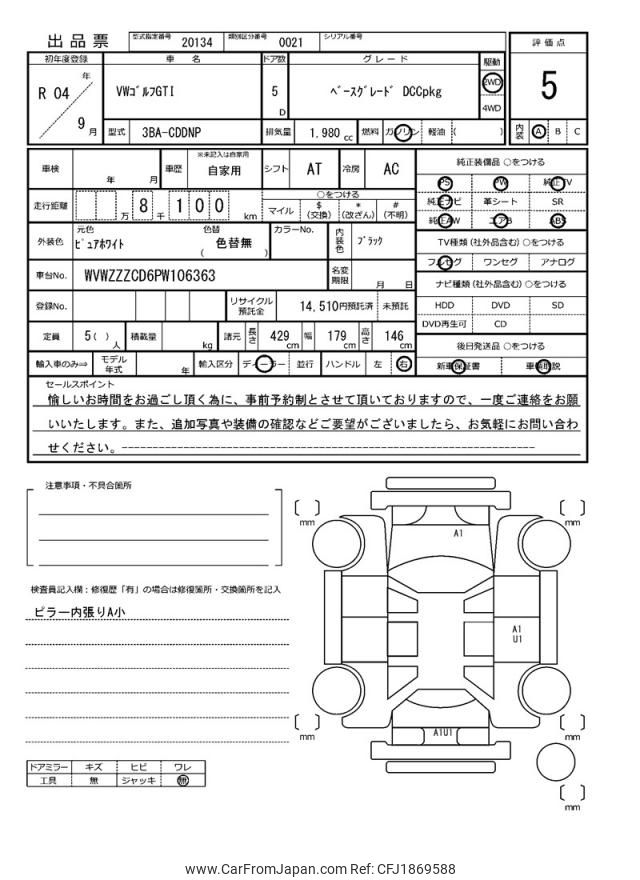 出品票 型式指定番号 20134 類別区分番号 0021 シリアル番号
評価点
5
内装 A B C
初年度登録 車名 ドア数 グレード 駆動
R 04 年 9 月
VWｺﾞﾙﾌGTI 5 D ﾍﾞｰｽｸﾞﾚｰﾄﾞ DCCpkg 2WD
4WD
型式 3BA-CDDNP 排気量 1.980 cc 燃料 ガソリン 軽油 ( )
車検 年 月 車歴 ※未記入は自家用 自家用 シフト AT 冷房 AC
走行距離 万 8 千 1 0 0 km
○をつける
マイル $ (交換) * (改ざん) # (不明)
外装色 元色 ﾋﾟｭｱﾎﾜｲﾄ 色替 ( 色替無 ) カラーNo. 内装色 ﾌﾞﾗｯｸ
車台No. WVWZZZCD6PW106363 名変期限 月 日
登録No. リサイクル預託金 14,510円預託済 未預託
定員 5( ) 人 積載量 kg 諸元 長さ 429 cm 幅 179 cm 高さ 146 cm
輸入車のみ⇨ モデル年式 年 輸入区分 ディーラー 並行 ハンドル 左 右
純正装備品 ○をつける
PS PW 純正TV
純正ナビ 革シート SR
純正AW エアB ABS
TV種類 (社外品含む) ○をつける
フルセグ ワンセグ アナログ
ナビ種類 (社外品含む) ○をつける
HDD DVD SD
DVD再生可 CD
後日発送品 ○をつける
新車保証書 車輌取説
セールスポイント
愉しいお時間をお過ごし頂く為に、事前予約制とさせて頂いておりますので、一度ご連絡をお願
いいたします。また、追加写真や装備の確認などご要望がございましたら、お気軽にお問い合わ
せください。
注意事項・不具合箇所
検査員記入欄：修復歴「有」の場合は修復箇所・交換箇所を記入
ピラー内張りA小
ドアミラー キズ ヒビ ワレ
工具 無 ジャッキ 無
mm
mm
A1
A1
U1
mm
mm
A1U1
mm
www.CarFromJapan.com Ref: CFJ1869588